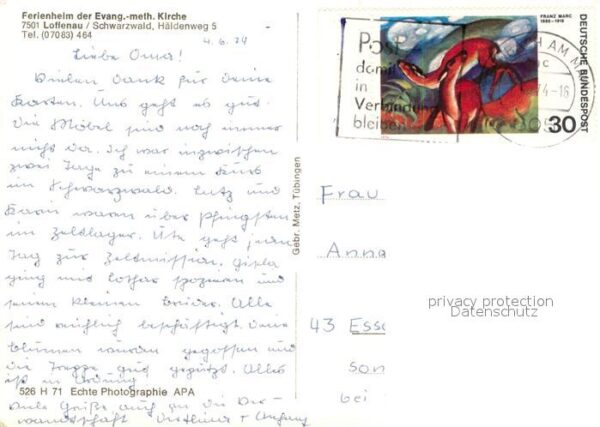 Ferienheim der Evang.-meth. Kirche
7501 Loffenau / Schwarzwald, Häldenweg 5
Tel. (07083) 464
4.6.74
Liebe Oma!
Vielen Dank für Deine
Karten. Uns geht es gut.
Die Möbel sind noch immer
nicht da. Ich war inzwischen
zwei Tage zu einem Kurs
im Schwarzwald. Lutz und
Karin waren über Pfingsten
im Zeltlager. Ute geht jeden
Tag zur Zeltmission. Gisela
ging mit Lothar spazieren und
seinem kleinen Bruder. Alle
sind reichlich beschäftigt. Deine
Blumen wurden gegossen und
die Treppe gut geputzt. Alles
ist in Ordnung
526 H 71 Echte Photographie APA
Viele Grüße auch an die Ver-
wandtschaft
Gebr. Metz, Tübingen
FRANZ MARC
1880-1916
DEUTSCHE BUNDESPOST
30
Post
damit
in
Verbindung
bleiben
H AM M
74-18
Frau
Anna
43 Esse
son
bei
privacy protection
Datenschutz